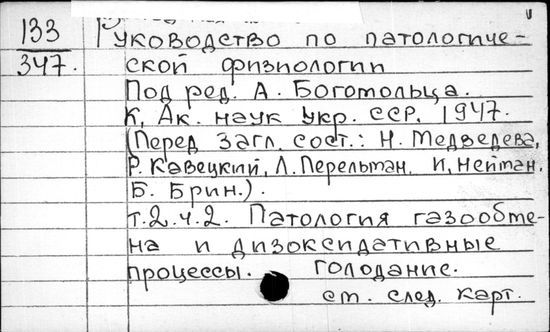 133
347.
Руководство по патологиче-
ской физиологии
Под ред. А. Богомольца.
К, Ак. наук Укр. ССР. 1947.
(Перед загл. сост.: Н. Медведева,
Р. Кавецкий, Л. Перельман, И, Нейман,
Б. Брин.).
т.2.ч.2. Патология газообме-
на и дизоксидативные
процессы. Голодание.
см. след. карт.